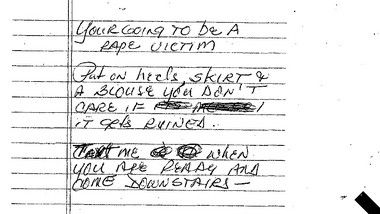 YOUR GOING TO BE A
RAPE VICTIM
Put on heels, SKIRT &
A BLOUSE YOU DON'T
CARE IF
IT GETS RUINED.
ME WHEN
YOU ARE READY AND
COME DOWNSTAIRS —